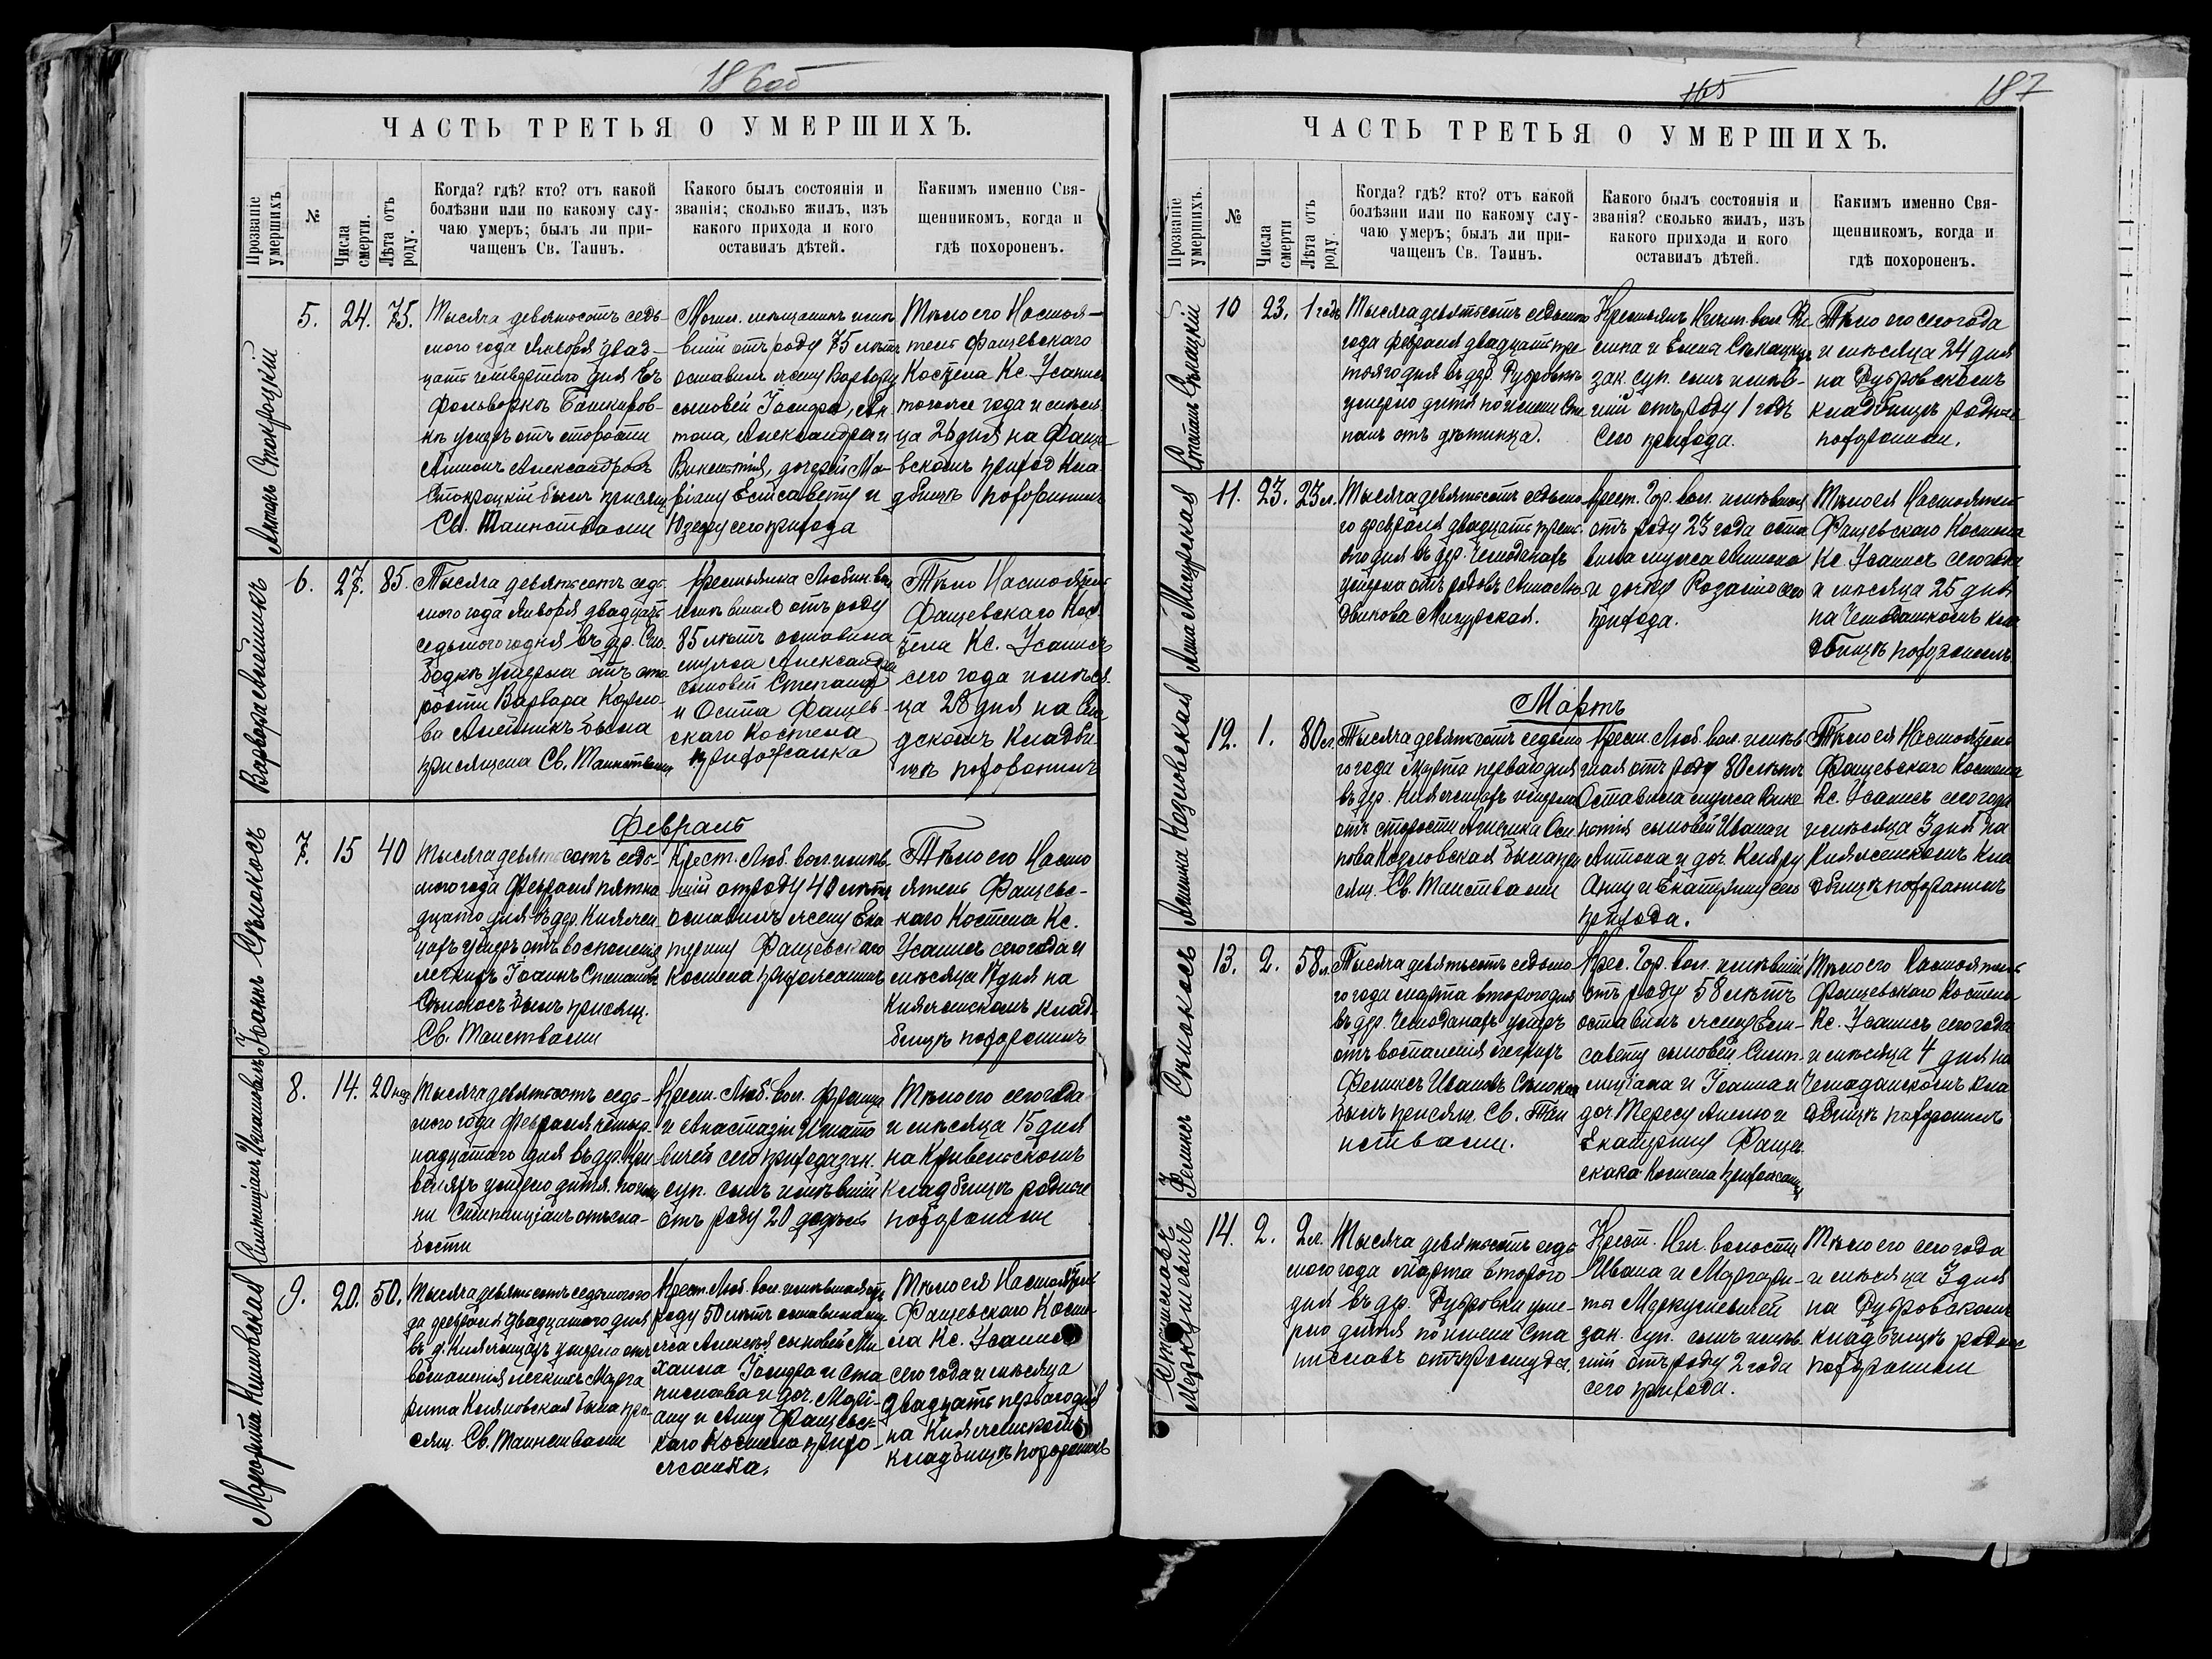 186об
ЧАСТЬ ТРЕТЬЯ О УМЕРШИХЪ.
Прозваніе умершихъ
№
Числа смерти.
Лѣта отъ роду.
Когда? гдѣ? кто? отъ какой
болѣзни или по какому слу-
чаю умеръ; былъ ли при-
чащенъ Св. Таинъ.
Какого былъ состоянія и
званія; сколько жилъ, изъ
какого прихода и кого
оставилъ дѣтей.
Какимъ именно Свя-
щенникомъ, когда и
гдѣ похороненъ.
Антонъ
5.
24.
75.
Тысяча девятьсотъ седь-
мого года Января двад-
цать четвертаго дня въ
фольваркѣ Башкиров-
кѣ умеръ отъ старости
Антонъ Александровъ
былъ присящ.
Св. Таинствами
Могил. мѣщанинъ имѣв
вшій отъ роду 75 лѣтъ
оставилъ жену Варвару
сыновей Іосифа, Ан-
тона, Александра и
Викентія, дочерей Ма-
ріанну Елисавету и
Юзефу сего прихода
Тѣло его Настоя-
тель Фащевскаго
Костела Кс. Усанисъ
тогоже года и мѣся-
ца 26 дня на Фаще-
вскомъ приход кла-
дбищѣ похоронилъ
Варвара Алейникъ
6.
27.
85.
Тысяча девятьсотъ седь-
мого года Января двадцать
седьмого дня въ др. Сло-
бодкѣ умерла отъ ста-
рости Варвара Карло-
ва Алейникъ была
присящена Св. Таинствами
Крестьянка Любин. вол.
имѣвшая отъ роду
85 лѣтъ оставила
мужа Александра
сыновей Степана
и Осипа Фащев-
скаго Костела
прихожанка
Тѣло Настоятель
Фащевскаго Кос-
тела Кс. Усанисъ
сего года и мѣся-
ца 28 дня на Сло-
дскомъ Кладби-
щѣ похоронилъ
Февраль
Іоаннъ Сѣнокосъ
7.
15
40
Тысяча девятьсотъ седь-
мого года Февраля пятна-
дцато дня въ др. Княжи-
цахъ умеръ отъ воспаленія
легкихъ Іоаннъ Степановъ
Сѣнокосъ былъ присящ.
Св. Таинствами
Крест. Люб. вол. имѣв-
шій отроду 40 лѣтъ
оставилъ жену Ека-
терину Фащевскаго
Костела прихожанинъ
Тѣло его Насто
ятель Фащевс-
каго Костела Кс.
Усанисъ сего года и
мѣсяца 17 дня на
Княжицкомъ клад-
бищѣ похоронилъ
Симплиціанъ Игнатовичъ
8.
14.
20 нед.
Тысяча девятьсотъ седь-
мого года Февраля четыр-
надцатаго дня въ др. Кри-
вельяхъ умерло дитя по име-
ни Симплиціанъ отъ сла-
бости
Крест. Люб. вол. Франца
и Анастазіи Игнато
вичей сего прихода зак.
суп. сынъ имѣвшій
отъ роду 20 недѣль
Тѣло его сего года
и мѣсяца 15 дня
на Кривельскомъ
кладбищѣ родные
похоронили
Маргарита
9.
20.
50.
Тысяча девятьсотъ седьмого го
да февраля двадцатаго дня
въ д. Княжицахъ умерла отъ
воспаленія легкихъ Марга
рита была при-
сящ. Св. Таинствами
Крест. Люб. вол. имѣвшая отъ
роду 50 лѣтъ оставила му
жа Алексѣя сыновей Ми
хаила Іосифа и Ста
нислава и доч. Марі-
анну и Анну Фащевск-
каго Костела прихо-
жанка.
Тѣло ея Настоятель
Фащевскаго Косте
ла Кс. Усанисъ
сего года и мѣсяца
двадцать перваго дня
на Княжицкомъ
кладбищѣ похоронилъ
165
187
ЧАСТЬ ТРЕТЬЯ О УМЕРШИХЪ.
Прозваніе умершихъ.
№
Числа смерти
Лѣта отъ роду.
Когда? гдѣ? кто? отъ какой
болѣзни или по какому слу-
чаю умеръ; былъ ли при-
чащенъ Св. Таинъ.
Какого былъ состоянія и
званія? сколько жилъ, изъ
какого прихода и кого
оставилъ дѣтей.
Какимъ именно Свя-
щенникомъ, когда и
гдѣ похороненъ.
Степанъ
10
23.
1 годъ
Тысяча девятьсотъ седьмого
года февраля двадцать тре-
тьяго дня въ др. Дубровкѣ
умерло дитя по имени Сте
панъ отъ дѣтинца.
Крестьянъ Ничип. вол.
и Елена
зак. суп. сынъ имѣв-
шій отъ роду 1 годъ
Сего прихода.
Тѣло его сего года
и мѣсяца 24 дня
на Дубровскомъ
кладбищѣ родные
похоронили.
Анна
11.
23.
23 л.
Тысяча девятьсотъ седьмо
го февраля двадцать треть-
яго дня въ др. Чемоданахъ
умерла отъ родовъ Анна Лю-
двикова
Крест. Гор. вол. имѣвшая
отъ роду 23 года оста
вила мужа Антона
и дочку Розалію сего
прихода.
Тѣло ея Настоятель
Фащевскаго Костела
Кс. Усанисъ сего года
и мѣсяца 25 дня
на Чемоданскомъ кла-
дбищѣ похоронилъ
Мартъ
Козловская
12.
1.
80 л.
Тысяча девятьсотъ седьмо
го года Марта перваго дня
въ др. Княжицахъ умерла
отъ старости Оси-
пова Козловская была при
сящ. Св. Таинствами
Крест. Люб. вол. имѣв
шая отъ роду 80 лѣтъ
Оставила мужа Вике
нтія сыновей Ивана и
Антона и доч. Клару
Анну и Екатерину сего
прихода.
Тѣло ея Настоятель
Фащевскаго Костела
Кс. Усанисъ сего года
и мѣсяца 3 дня на
Княжицкомъ Кла
дбищѣ похоронилъ
Феликсъ Сѣнокосъ
13.
2.
58 л.
Тысяча девятьсотъ седьмо
го года марта второго дня
въ др. Чемоданахъ умеръ
отъ воспаленія легкихъ
Феликсъ Ивановъ Сѣнокосъ
былъ присящ. Св. Таи
нствами.
Крес. Гор. вол. имѣвшій
отъ роду 58 лѣтъ
оставилъ жену Ели-
савету сыновей Симп-
лиціана и Іоанна и
доч. Тересу Анелю и
Екатерину Фаще
скаго Костела прихожанинъ
Тѣло его Настоятель
Фащевскаго Костела
Кс. Усанисъ сего года
и мѣсяца 4 дня на
Чемоданскомъ кла
дбищѣ похоронилъ
Станиславъ Меркулевичъ
14.
2.
2 л.
Тысяча девятьсотъ седь
мого года Марта второго
дня въ др. Дубровки уме-
рло дитя по имени Ста
ниславъ отъ простуды.
Крест. Нич. волости
Ивана и Маргари-
ты Меркулевичей
зак. суп. сынъ имѣв.
шій отъ роду 2 года
сего прихода.
Тѣло его сего года
и мѣсяца 3 дня
на Дубровскомъ
кладбищѣ родные
похоронили